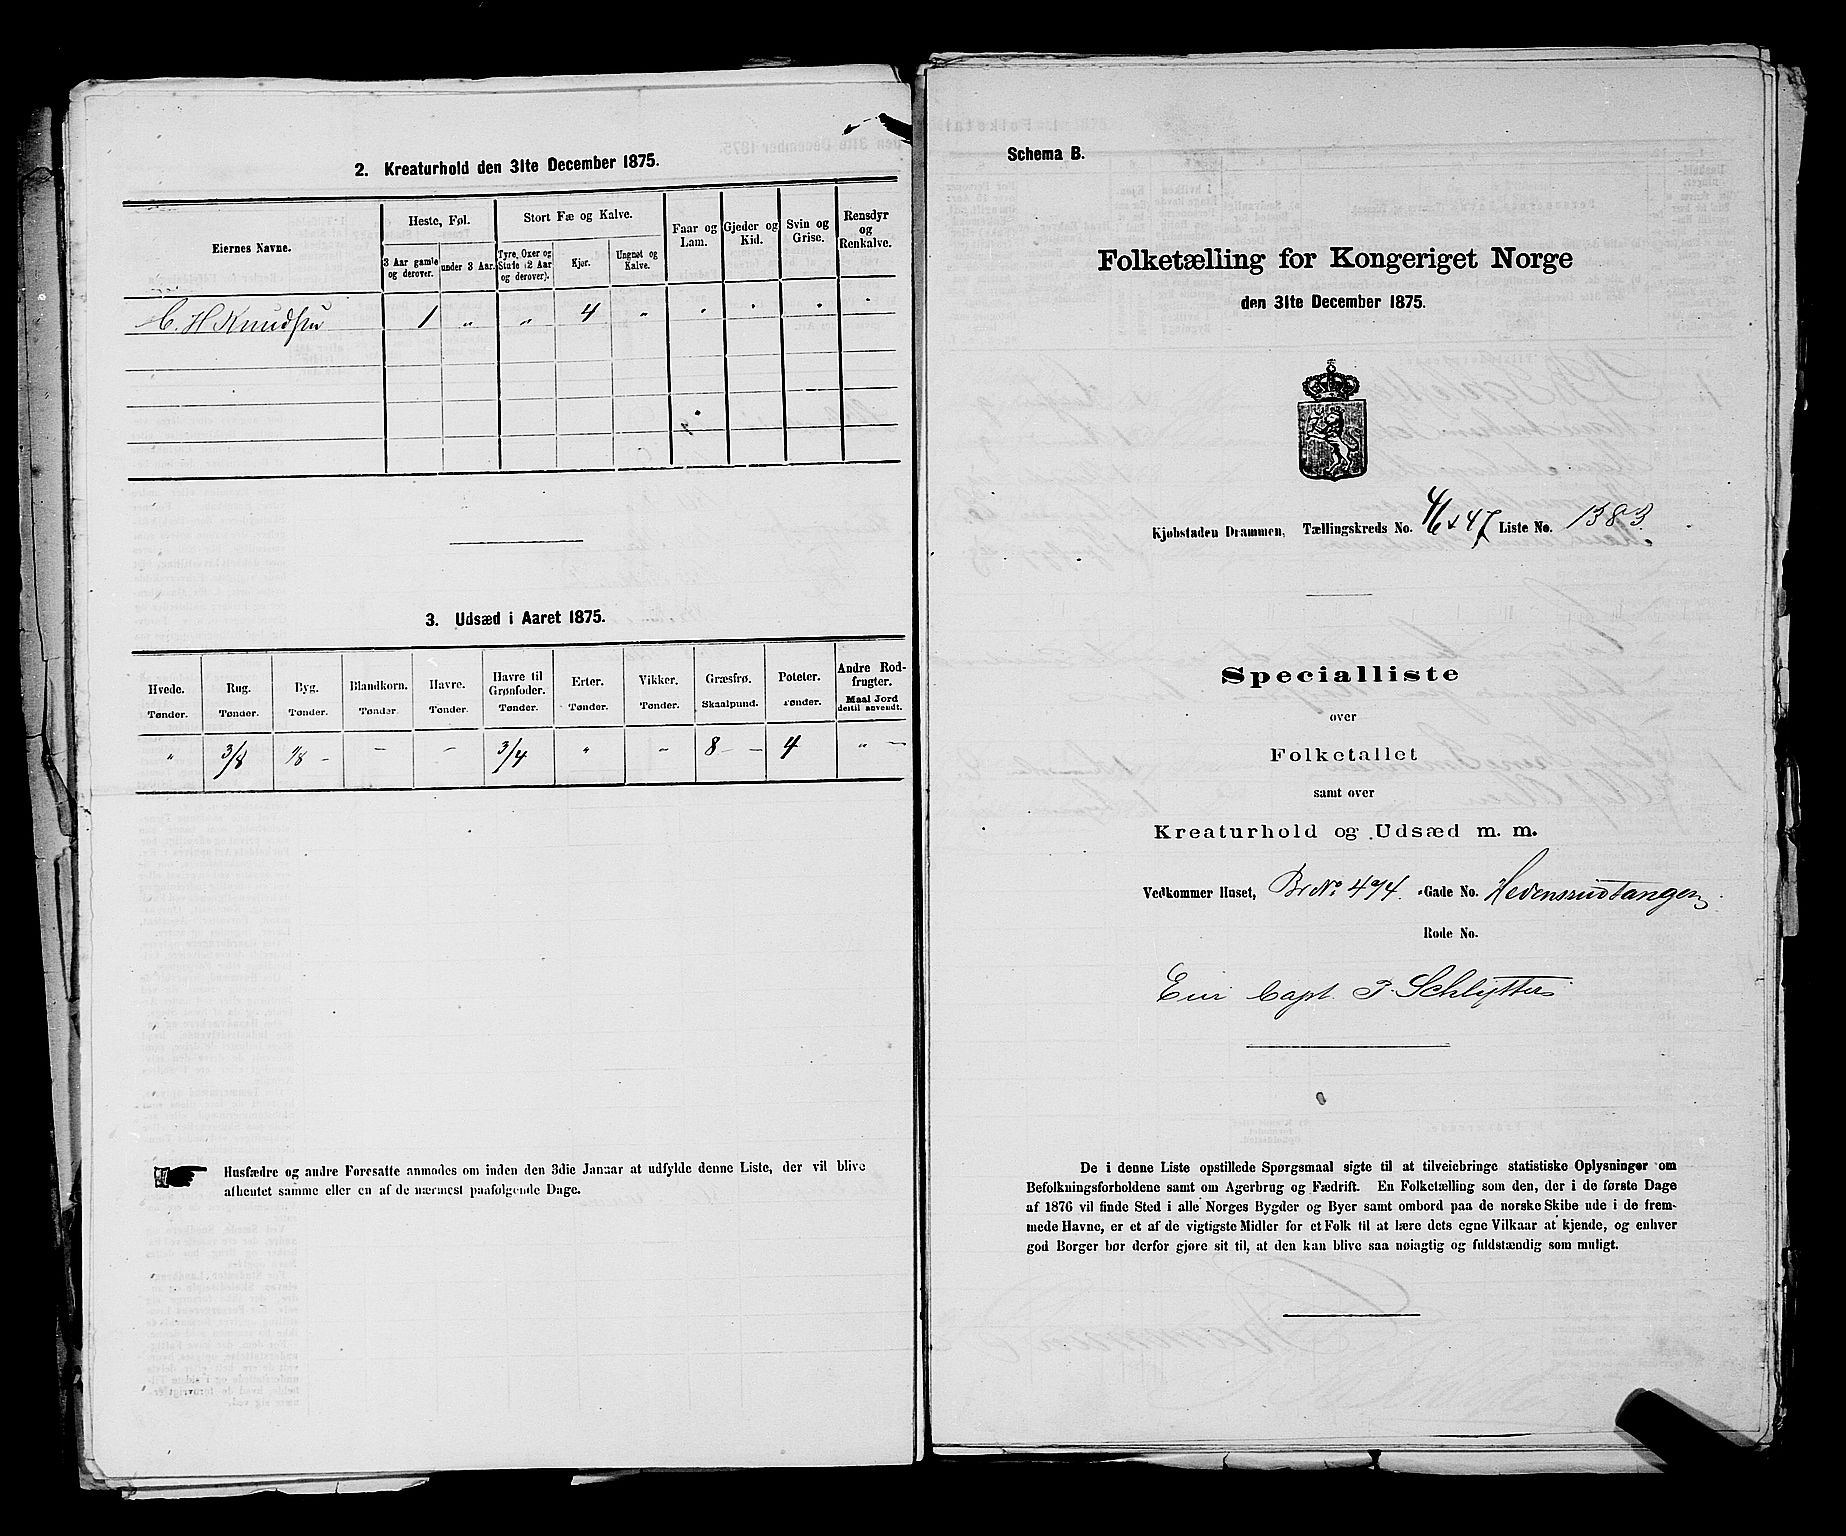 2. Kreaturhold den 31te December 1875.
Eiernes Navne. Heste, Føl. Stort Fæ og Kalve. Faar og Lam. Gjeder og Kid. Svin og Grise. Rensdyr og Renkalve.
3 Aar gamle og derover. under 3 Aar. Tyre, Oxer og Stude (2 Aar og derover). Kjør. Ungnøt og Kalve.
C. H Knudsen 1 " " 4 " " " " "
3. Udsæd i Aaret 1875.
Hvede. Rug. Byg. Blandkorn. Havre. Havre til Grønfoder. Erter. Vikker. Græsfrø. Poteter. Andre Rodfrugter.
Tønder. Tønder. Tønder. Tønder. Tønder. Tønder. Tønder. Tønder. Skaalpund. Tønder. Maal Jord dertil anvendt.
" 3/8 1/8 - - - 3/4 " - 8 - - 4 " -
Husfædre og andre Foresatte anmodes om inden den 3die Januar at udfylde denne Liste, der vil blive
afhentet samme eller en af de nærmest paafølgende Dage.
Schema B.
Folketælling for Kongeriget Norge
den 31te December 1875.
Kjøbstaden Drammen, Tællingskreds No. 46 & 47 Liste No. 1383
Specialliste
over
Folketallet
samt over
Kreaturhold og Udsæd m. m.
Vedkommer Huset, Br No. 474. -Gade No. Hedensrudtangen
Rode No.
Eier Capt. P. Schlytter
De i denne Liste opstillede Spørgsmaal sigte til at tilveiebringe statistiske Oplysninger om
Befolkningsforholdene samt om Agerbrug og Fædrift. En Folketælling som den, der i de første Dage
af 1876 vil finde Sted i alle Norges Bygder og Byer samt ombord paa de norske Skibe ude i de frem-
mede Havne, er et af de vigtigste Midler for et Folk til at lære dets egne Vilkaar at kjende, og enhver
god Borger bør derfor gjøre sit til, at den kan blive saa nøiagtig og fuldstændig som muligt.